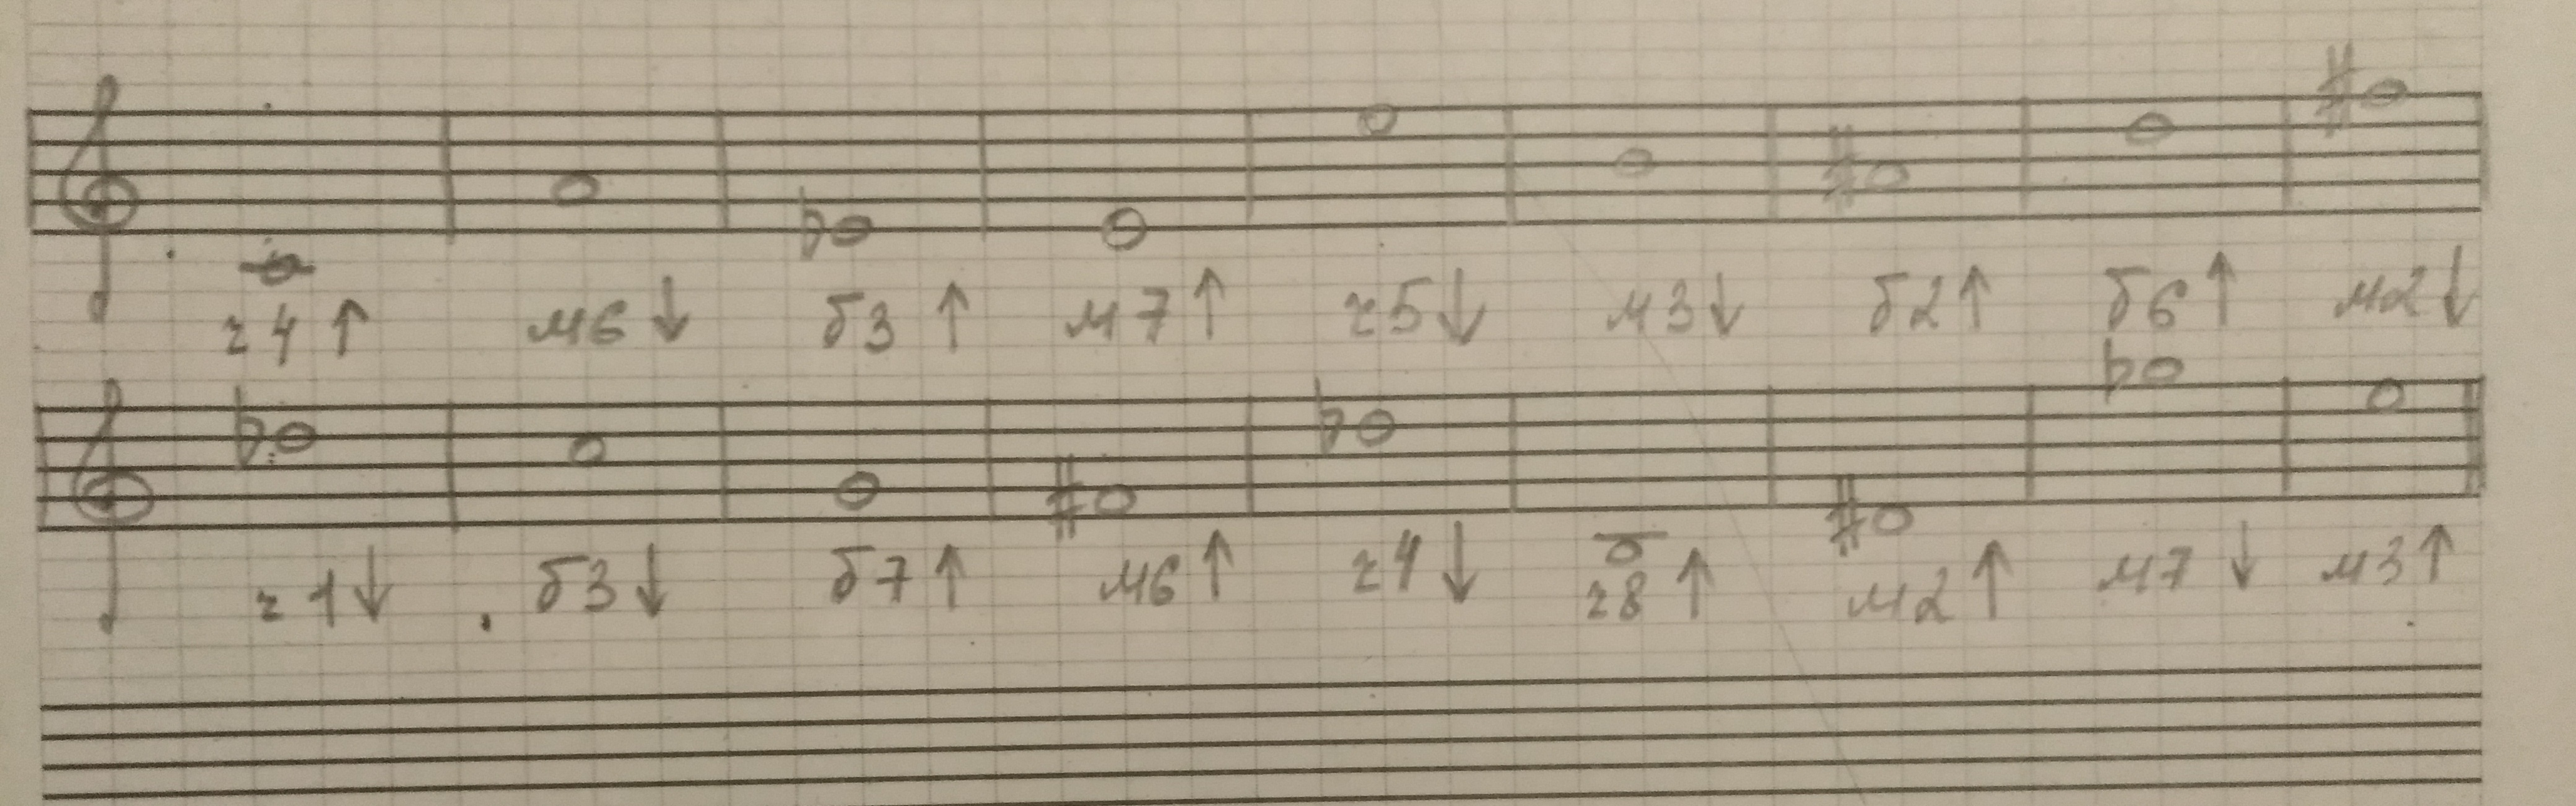 ч4↑ м6↓ б3↑ м7↑ ч5↓ м3↓ б2↑ б6↑ м2↓
ч1↓ б3↓ б7↑ м6↑ ч4↓ ч8↑ м2↑ м7↓ м3↑